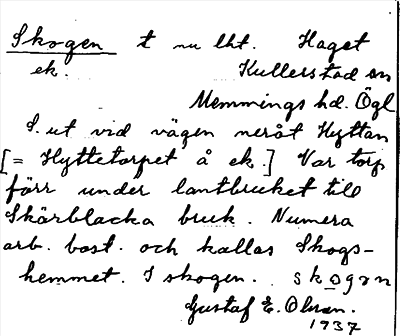 Skogen t nu lht. Haget
ek. Kullerstad sn
Memmings hd. Ögl
S. ut vid vägen neråt Hyttan
[= Hyttetorpet å ek.] Var torp
förr under lantbruket till
Skärblacka bruk. Numera
arb. bost. och kallas Skogs-
hemmet. I skogen. skogən
Gustaf E. Olsson.
1937